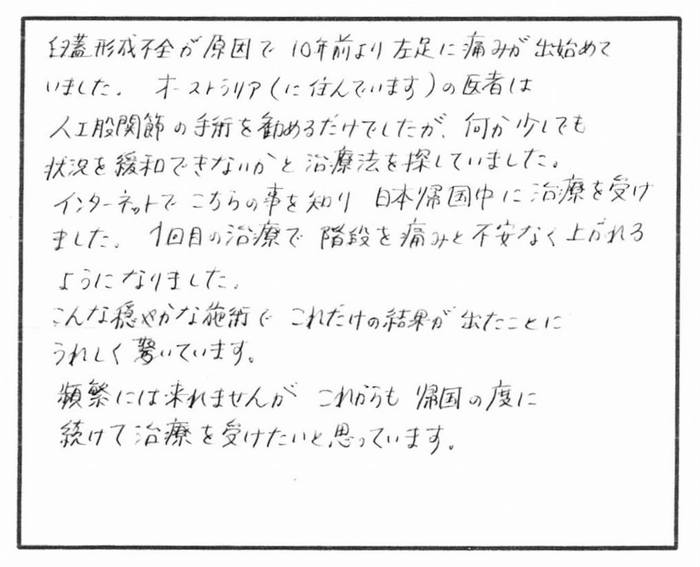 臼蓋形成不全が原因で 10年前より左足に痛みが出始めて
いました。 オーストラリア(に住んでいます)の医者は
人工股関節の手術を勧めるだけでしたが、何か少しでも
状況を緩和できないかと治療法を探していました。
インターネットでこちらの事を知り 日本帰国中に治療を受け
ました。 1回目の治療で 階段を痛みと不安なく上がれる
ようになりました。
こんな穏やかな施術で これだけの結果が出たことに
うれしく驚いています。
頻繁には来れませんが これからも帰国の度に
続けて治療を受けたいと思っています。